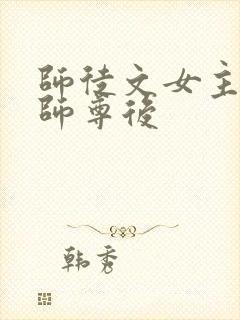 師徒文女主
師尊後
韩秀